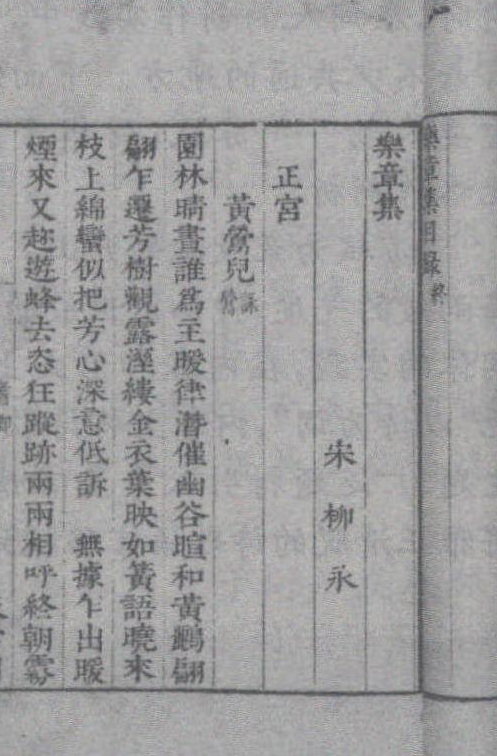 樂章集目錄 終
樂章集
宋柳永
正宮
黃鶯兒 詠鶯
園林晴晝誰為主暖律潛催幽谷暄和黃鸝翩
翩乍遷芳樹觀露溼縷金衣葉映如簧語曉來
枝上綿蠻似把芳心深意低訴 無據乍出暖
煙來又趂遊蜂去恣狂蹤跡兩兩相呼終朝霧